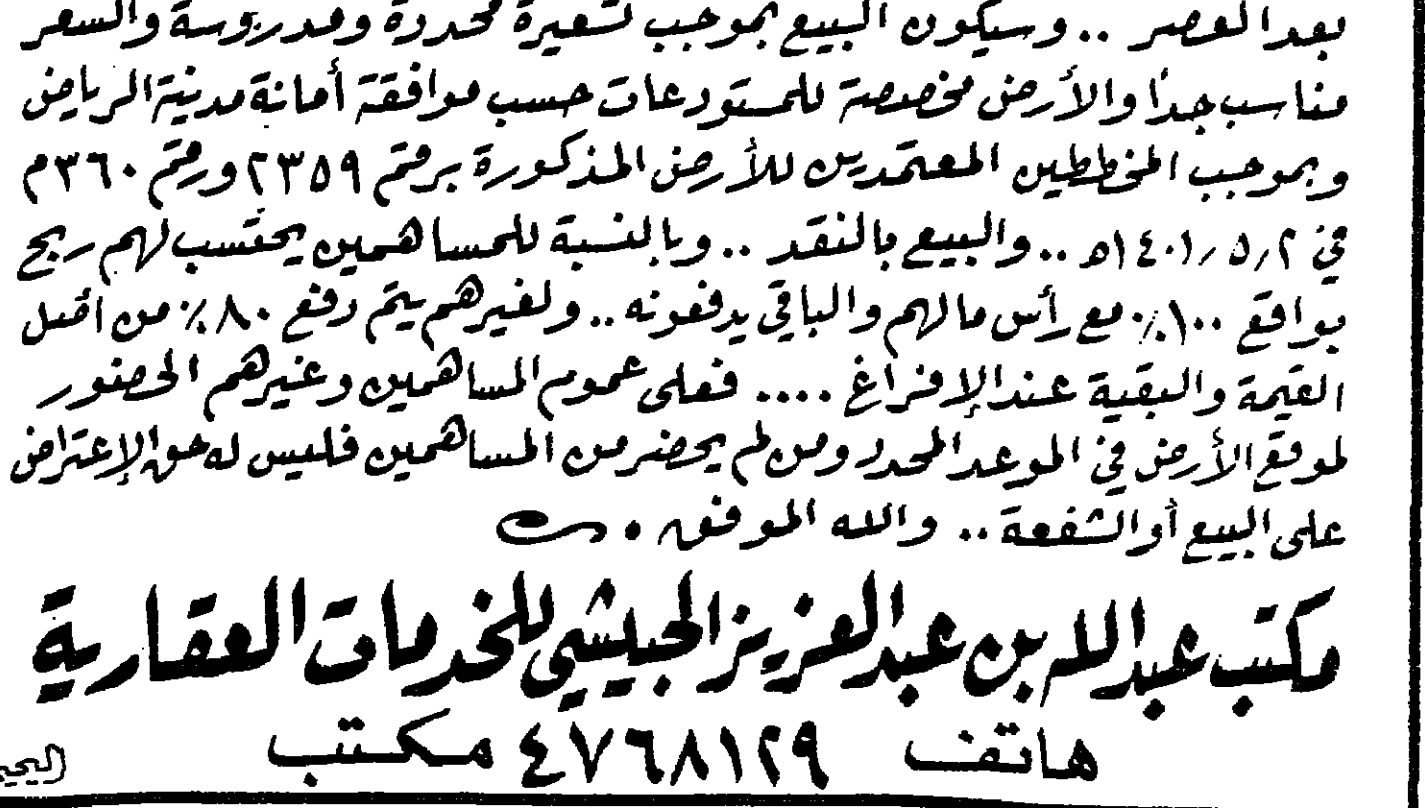 بعد العصر .. وسيكون البيع بموجب تسعيرة محددة ومدروسة والسعر
مناسب جداً والأرض مخصصة للمستودعات حسب موافقة أمانة مدينة الرياض
وبموجب المخططين المعتمدين للأرض المذكورة برقم ٢٣٥٩ ورقم ٣٦٠م
في ١٤٠١/٥/٢ه .. والبيع بالنقد .. وبالنسبة للمساهمين يحتسب لهم ربح
بواقع ١٠٠٪ مع رأس مالهم والباقي يدفعونه .. ولغيرهم يتم دفع ٨٠٪ من أقبل
القيمة والبقية عند الإفراغ .... فعلى عموم المساهمين وغيرهم الحضور
لموقع الأرض في الموعد المحدد ومن لم يحضر من المساهمين فليس له حق الإعتراض
على البيع أو الشفعة .. والله الموفق ،
مكتب عبدالله بن عبدالعزيز الجبيشي للخدمات العقارية
هاتف ٤٧٦٨١٢٩ مكتب